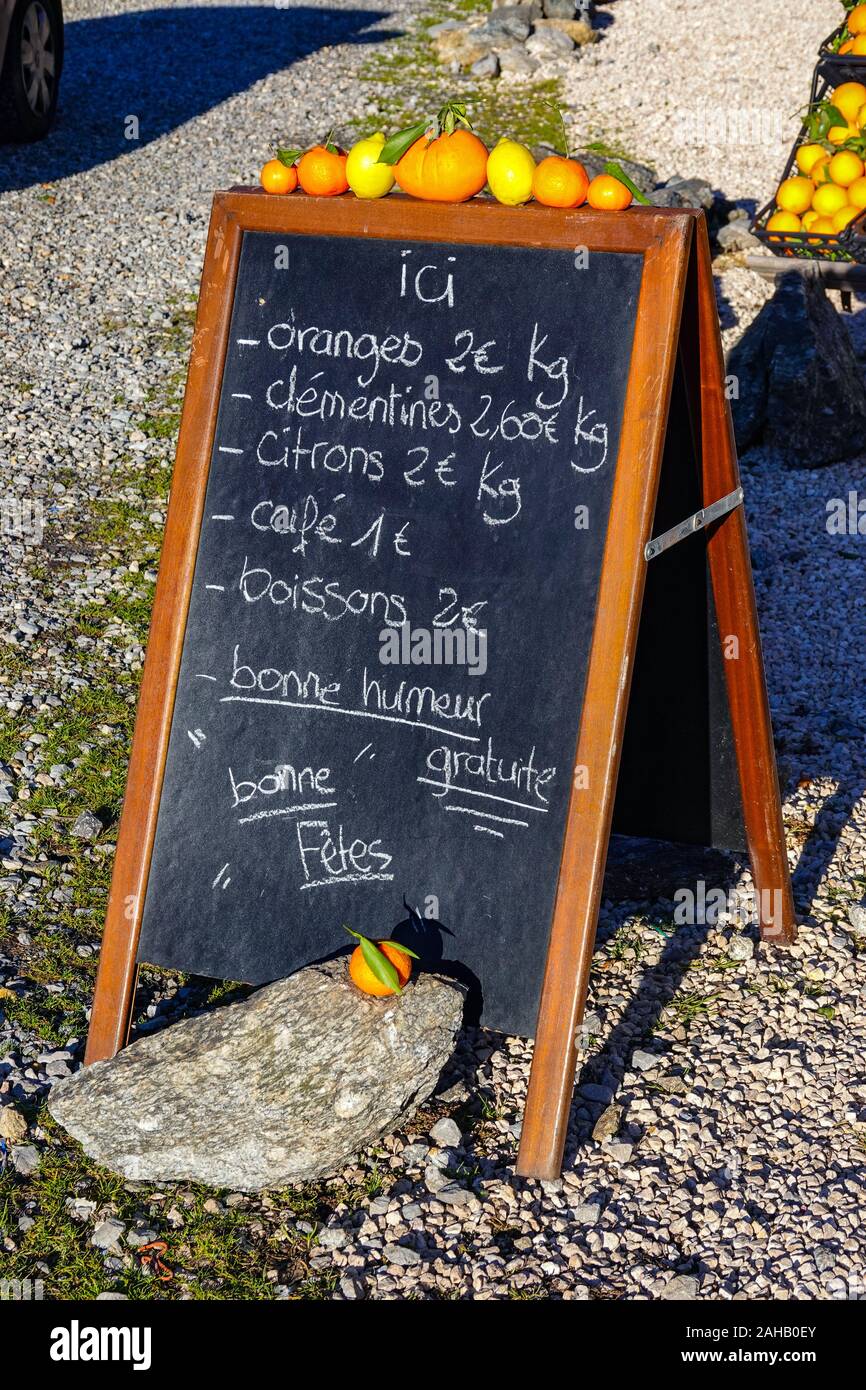 ici
- oranges 2€ Kg
- clémentines 2,60€ Kg
- citrons 2€ Kg
- café 1€
- boissons 2€
- bonne humeur
gratuite
" bonne "
Fêtes
"
alamy
Image ID: 2AHB0EY
www.alamy.com